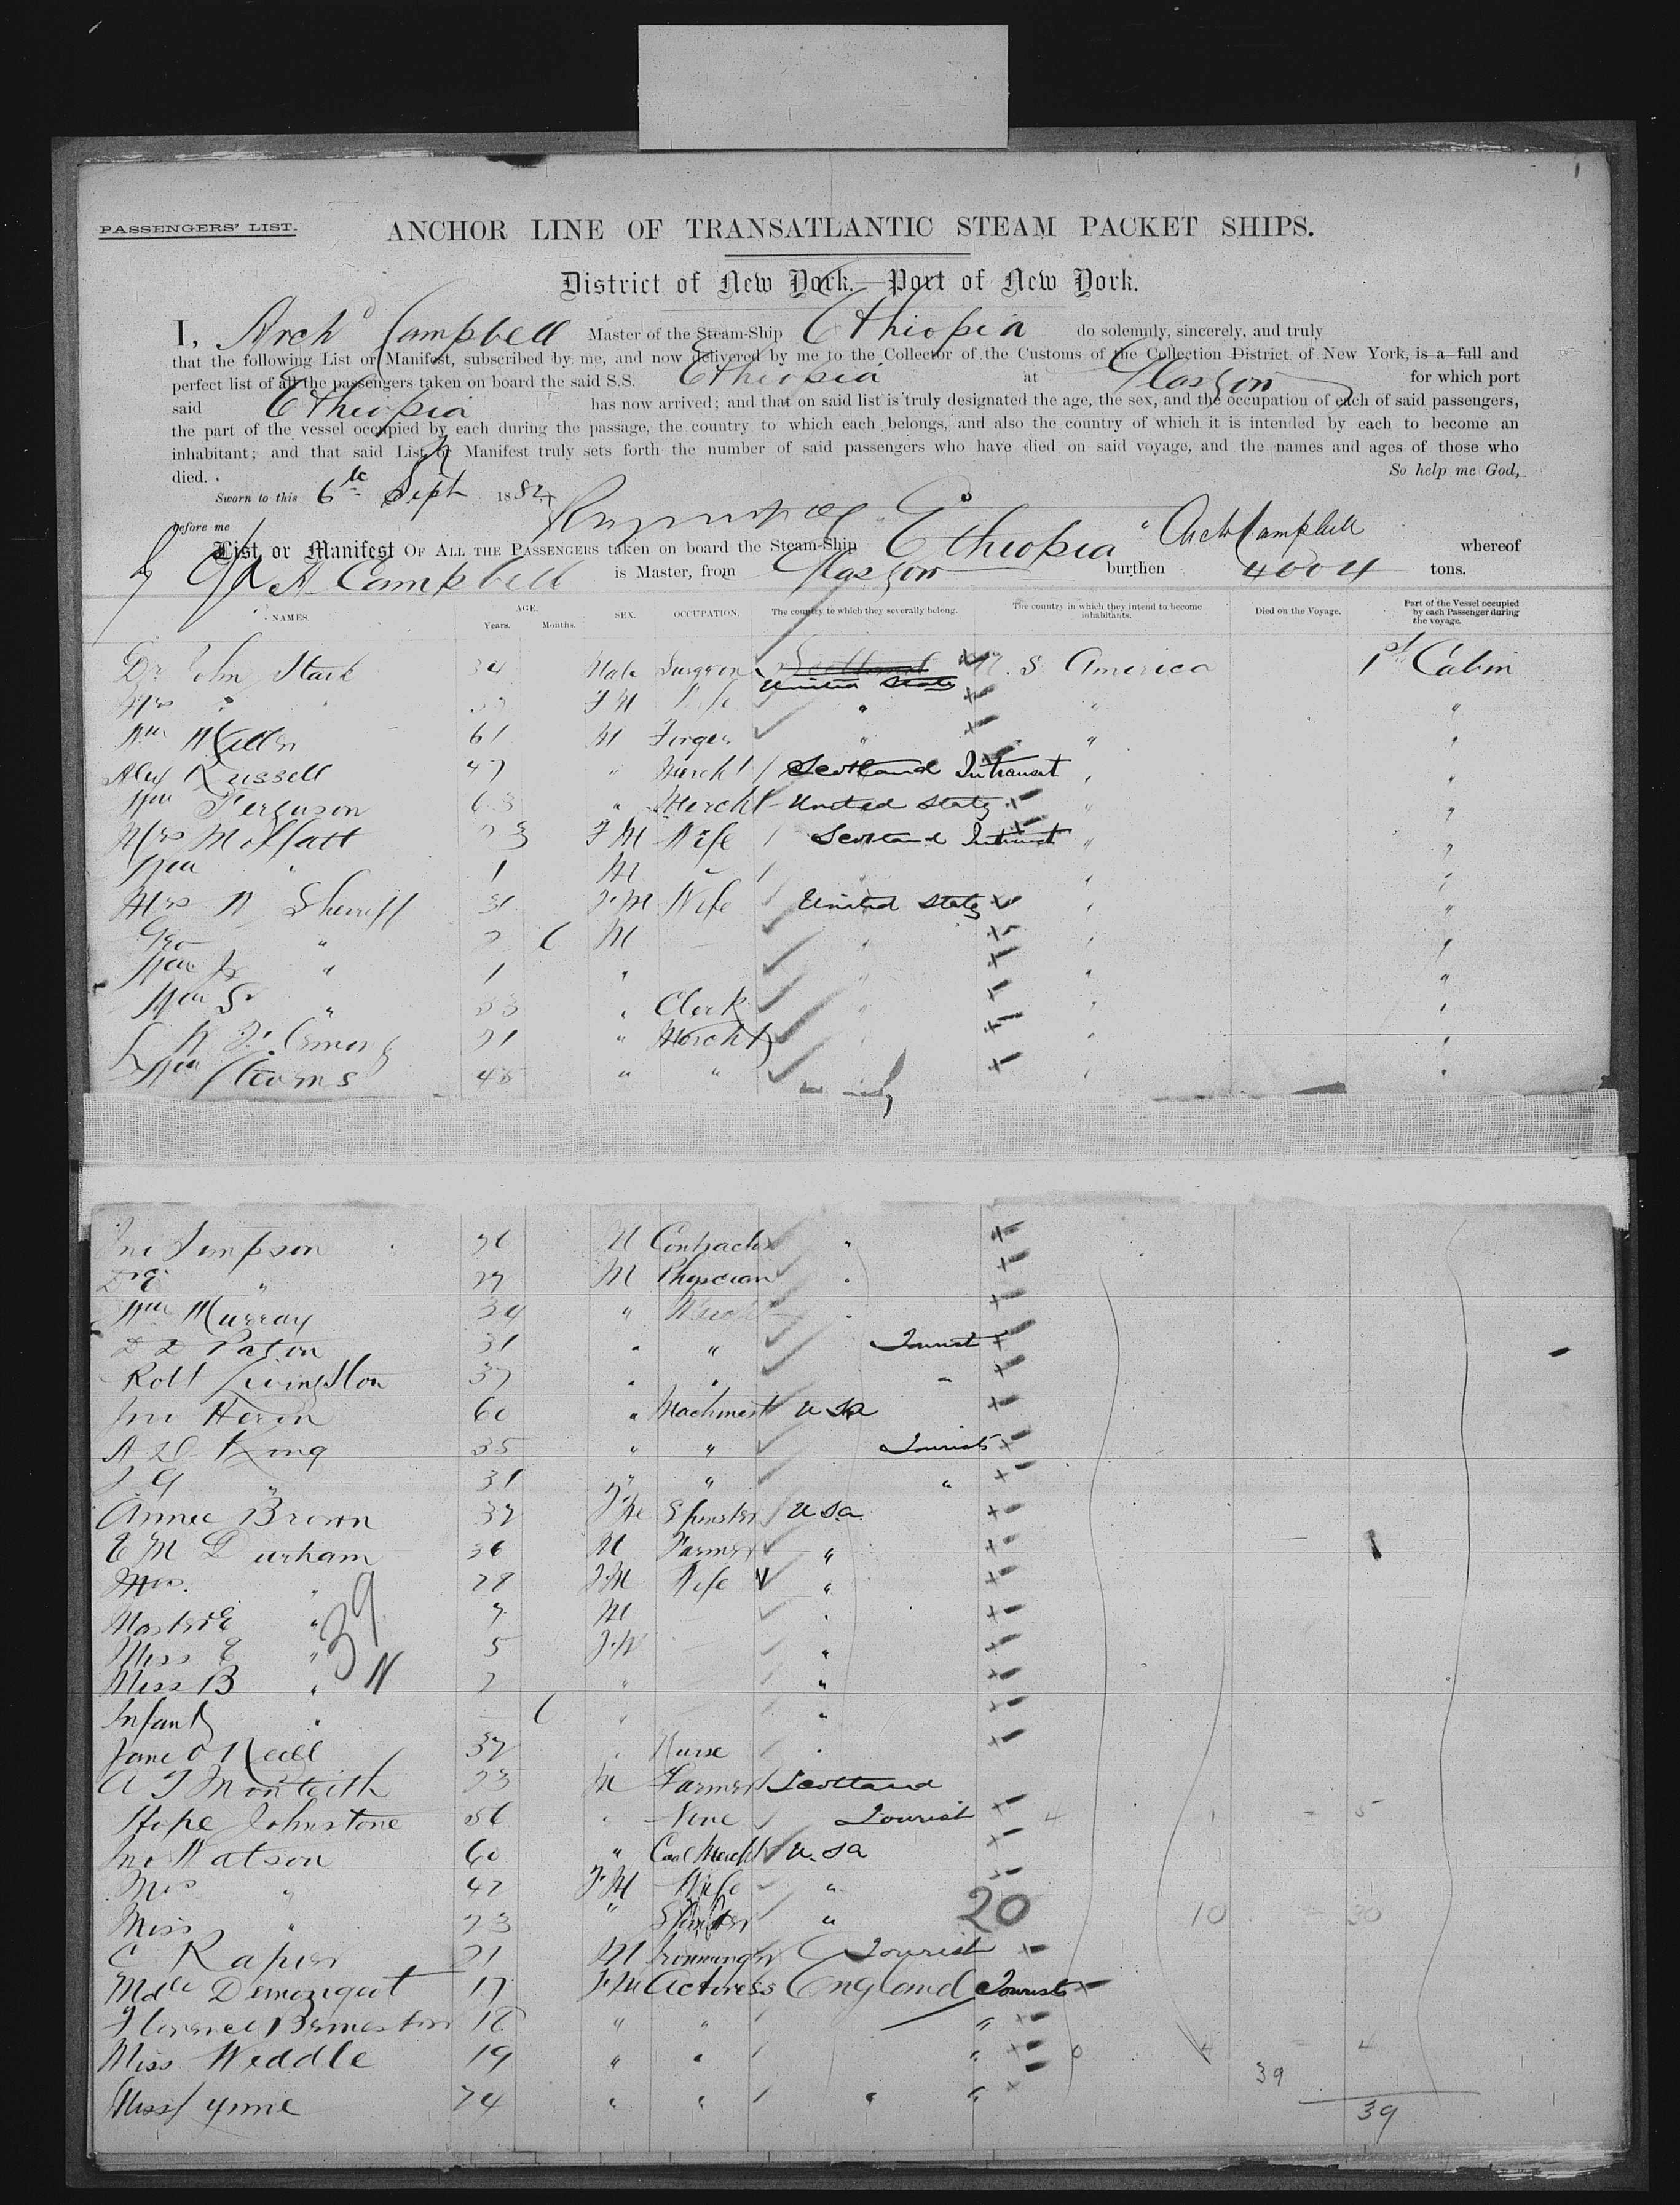 PASSENGERS' LIST.
ANCHOR LINE OF TRANSATLANTIC STEAM PACKET SHIPS.
District of New York.—Port of New York.
I, Archd Campbell Master of the Steam-Ship Ethiopia do solemnly, sincerely, and truly
that the following List or Manifest, subscribed by me, and now delivered by me to the Collector of the Customs of the Collection District of New York, is a full and
perfect list of all the passengers taken on board the said S.S. Ethiopia at Glasgow for which port
said Ethiopia has now arrived; and that on said list is truly designated the age, the sex, and the occupation of each of said passengers,
the part of the vessel occupied by each during the passage, the country to which each belongs, and also the country of which it is intended by each to become an
inhabitant; and that said List or Manifest truly sets forth the number of said passengers who have died on said voyage, and the names and ages of those who
died. So help me God,
Sworn to this 6th Sept 1882
before me Arch Campbell
List or Manifest OF ALL THE PASSENGERS taken on board the Steam-Ship Ethiopia whereof
A Campbell is Master, from Glasgow burthen 4004 tons.
NAMES. AGE. Years. Months. SEX. OCCUPATION. The country to which they severally belong. The country in which they intend to become inhabitants. Died on the Voyage. Part of the Vessel occupied by each Passenger during the voyage.
Dr John Stark 34 Male Surgeon Scotland United States U. S. America 1st Cabin
Mrs " " FM Wife " " "
Wm Miller 61 M Forger " " "
Alex Russell 47 " Mercht Scotland Intransit " "
Wm Ferguson 63 " Mercht United States " "
Mrs Moffatt 23 FM Wife Scotland Intransit " "
Wm " 1 M " " "
Mrs W Sherriff 31 FM Wife United States " "
Geo " 2 M " " "
Wm Jr " 1 " " " "
Wm Sr " 33 " Clerk " " "
21 " Mercht " " "
Wm Stearns 45 " " " "
Jno Simpson 56 M Contractor "
Dr E " 27 M Physcian "
Wm Murray 34 " Mercht "
D D Paton 31 " " Tourist
Robt Livingston 37 " " "
Jno Heron 60 " Machinest USA
A D King 35 " " Tourist
J G " 31 " " "
Annie Brown 37 FM Spinster USA
E M Durham 36 M Farmer "
Mrs. " 29 FM Wife "
Master E " 7 M "
Miss E " 5 FM "
Miss B " 2 " "
39
Infant " " "
Jane O Neill 37 " Nurse "
A T Monteith 23 M Farmer Scotland
Hope Johnstone 56 " None Tourist 4 1 = 5
Jno Watson 60 " Coal Mercht USA
Mrs " 42 FM Wife "
Miss " 23 " Spinster " 20 10 = 30
C Raper 21 M Ironmonger Tourist
Mdlle Demongeot 17 FM Actress England Tourist
Florence 18 " " "
Miss Weddle 19 " " " 0 4 = 4
39
Miss Lynne 24 " " " "
39